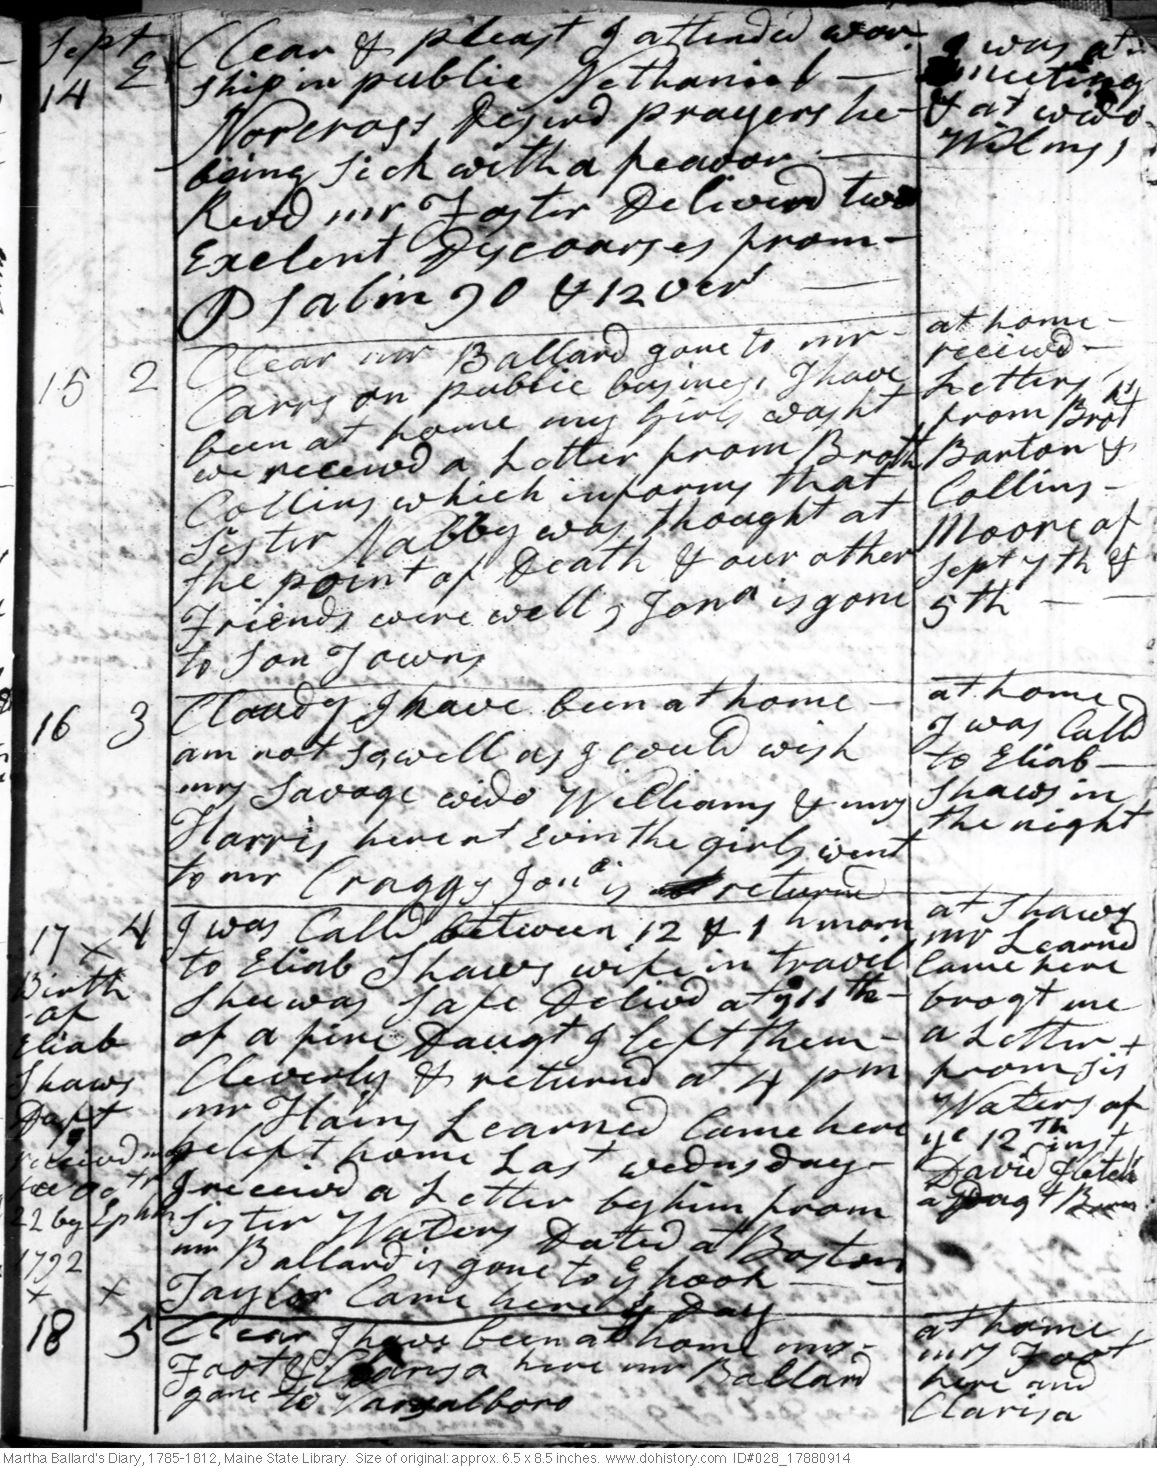 Sept
14 E
Clear & pleast I attended wor
ship in public Nethaniel —
Norcross Desird prayers he-
being sick with a feavor. —
Revd mr Foster Deliverd two
Exelent Discoarses from —
Psalm 90 & 12 ver —
I was at
meeting
& at wido
Wilms,
15 2
Clear mr Ballard gone to mr -
Carrs on public business, I have
been at home my Girls washt
we receivd a Letter from Broth
Collins which informs that
Sister Nabby was thought at
the point of Death & our other
Friends were well, Jona is gone
to Son Towns
at home -
receivd -
Letters
from Brot
Barton &
Collins -
Moore of
Sept 7th &
5th — —
16 3
Cloudy I have been at home —
am not so well as I could wish
mrs Savage wido Williams & mrs
Harris here at Evin the girls went
to mr Craggs Jona is returnd
at home
I was Calld
to Eliab —
Shaws in
the night
17 x 4
Birth
of
Eliab
Shaws
Dagt
receivd
22 by Ephm
1792
x x
I was Calld between 12 & 1 h morn
to Eliab Shaws wife in travil
Shee was Safe Delivd at 11 th —
of a fine Daugt I left them —
Cleverly & returnd at 4 pm
mr Hains Learned Came here
he left home Last wednsday —
I receivd a Letter by him from
Sister Waters Dated at Boston
mr Ballard is gone to ye hook — —
Taylor Came here ys Day
at Shaws
mr Learned
Came here
brogt me
a Letter
from Sis
Waters of
ye 12th inst
David Fletch
a Daugt Born
18 5
Clear I have been at home mrs -
Foot & Clarisa here mr Ballard
gone to Varsalboro
at home
mrs Foot
here and
Clarisa
Martha Ballard's Diary, 1785-1812, Maine State Library. Size of original: approx. 6.5 x 8.5 inches. www.dohistory.com ID#028_17880914